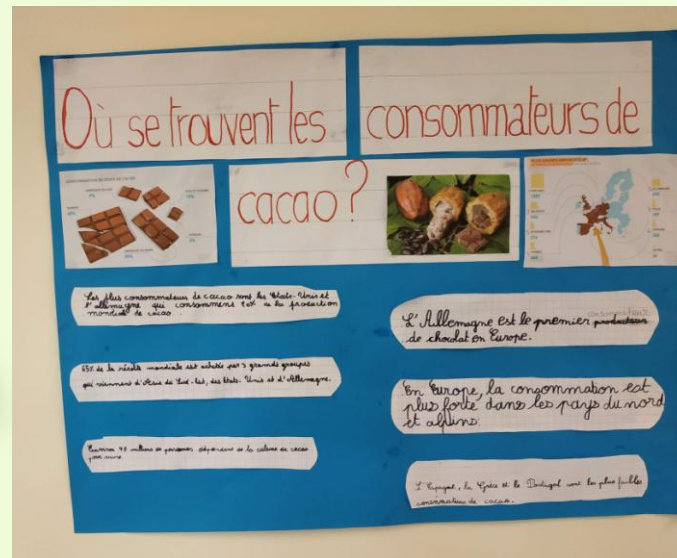 Où se trouvent les
consommateurs de
cacao?
Les plus consommateurs de cacao sont les Etats-Unis et
l'allemagne qui consomment
de la production
mondiale de cacao.
65% de la récolte mondiale est achetée par 3 grands groupes
qui viennent d'Asie du Sud-Est, des Etats-Unis et d'Allemagne.
Environ 40 millions de personnes dépendent de la culture du cacao
pour vivre.
consommateur
L'Allemagne est le premier producteur
de chocolat en Europe.
En Europe, la consommation est
plus forte dans les pays du nord
et alpins.
L'Espagne, la Grèce et le Portugal sont les plus faibles
consommateurs de cacao.